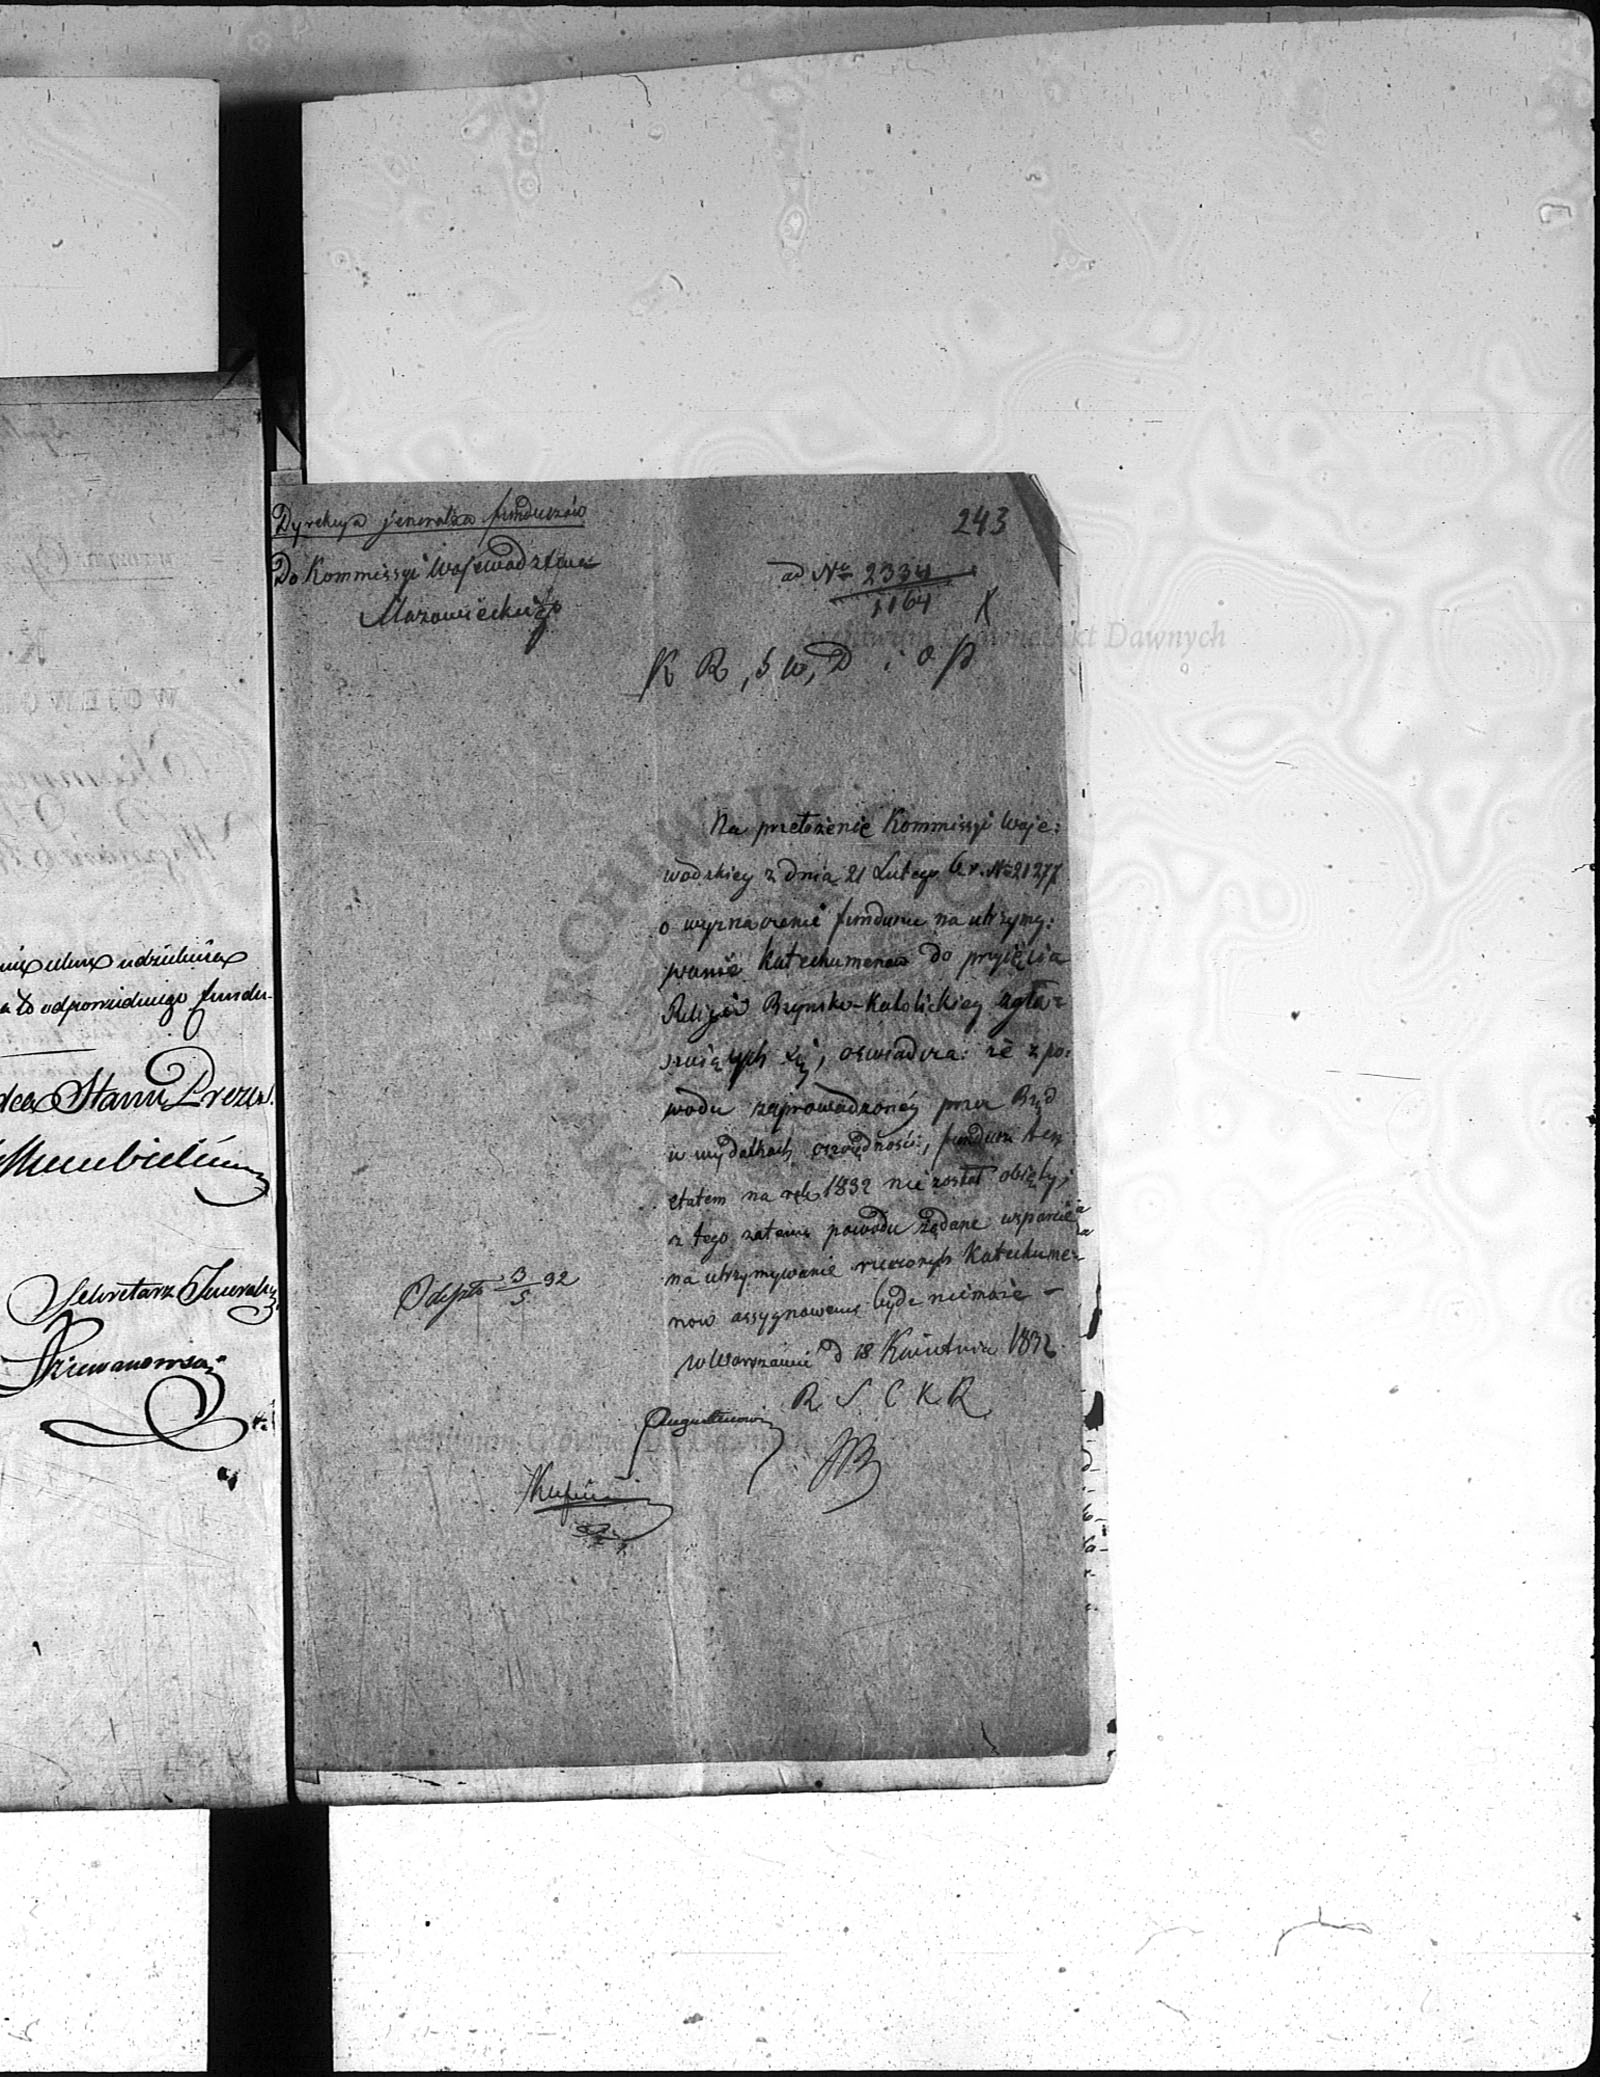 Dyrekcya jeneralna funduszów
Do Kommissyi Województwa
Mazowieckiego
243
ad Nro 2334
1164
K R, S W, D i O P
Na przełożenie Kommissyi Woje:
wodzkiey z dnia 21 Lutego b. r. No 21277
o wyznaczenie funduszu na utrzymy:
wanie Katechumenow do przyięcia
Religii Rzymsko-Katolickiey zgła:
szaiących się, oswiadcza: że z po:
wodu zaprowadzoney przez Rząd
w wydatkach oszczędności, fundusz ten
etatem na rok 1832 nie został obięty;
z tego zatem powodu żądane wsparcie
na utrzymywanie rzeczonych Katechume:
now assygnowane bydź niemoże –
w Warszawie d 18 Kwietnia 1832
R S C K R
Odesłto 3/5 32
nie udzielenie
odpowiedniego fundu-
Stanu Prezes.
Sekretarz Jeneralny
Archiwum Główne Akt Dawnych
Archiwum Główne Akt Dawnych
ARCHIWUM